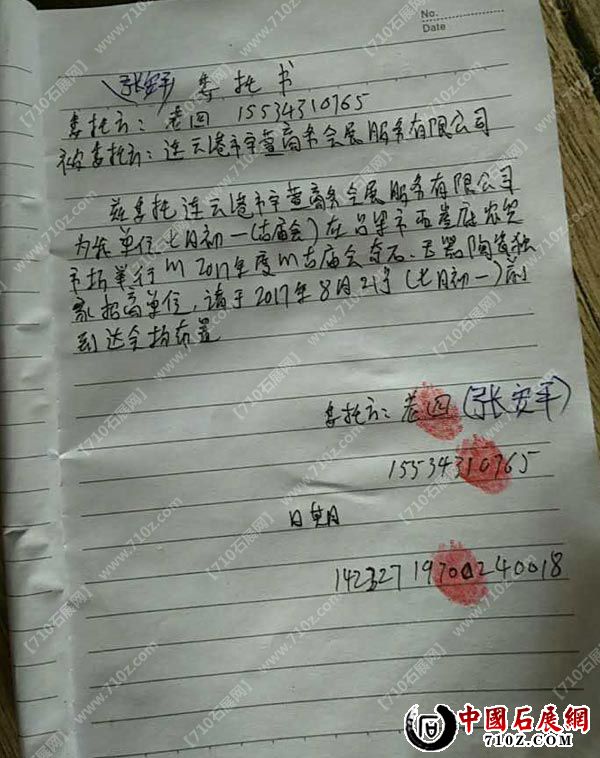 No.
Date
(张安平) 委托书
委托方：老四 15534310765
被委托方：连云港市宇萱商务会展服务有限公司
兹委托连云港市宇萱商务会展服务有限公司
为我单位七月初一(古庙会)在吕梁市 农贸
市场举行的2017年度的古庙会奇石、玉器陶瓷独
家招商单位，请于2017年8月21号(七月初一)前
到达会场布置
委托方：老四(张安平)
15534310765
日期
142327197002240018
【710石展网】
www.710z.com
中國石展網
710Z.COM